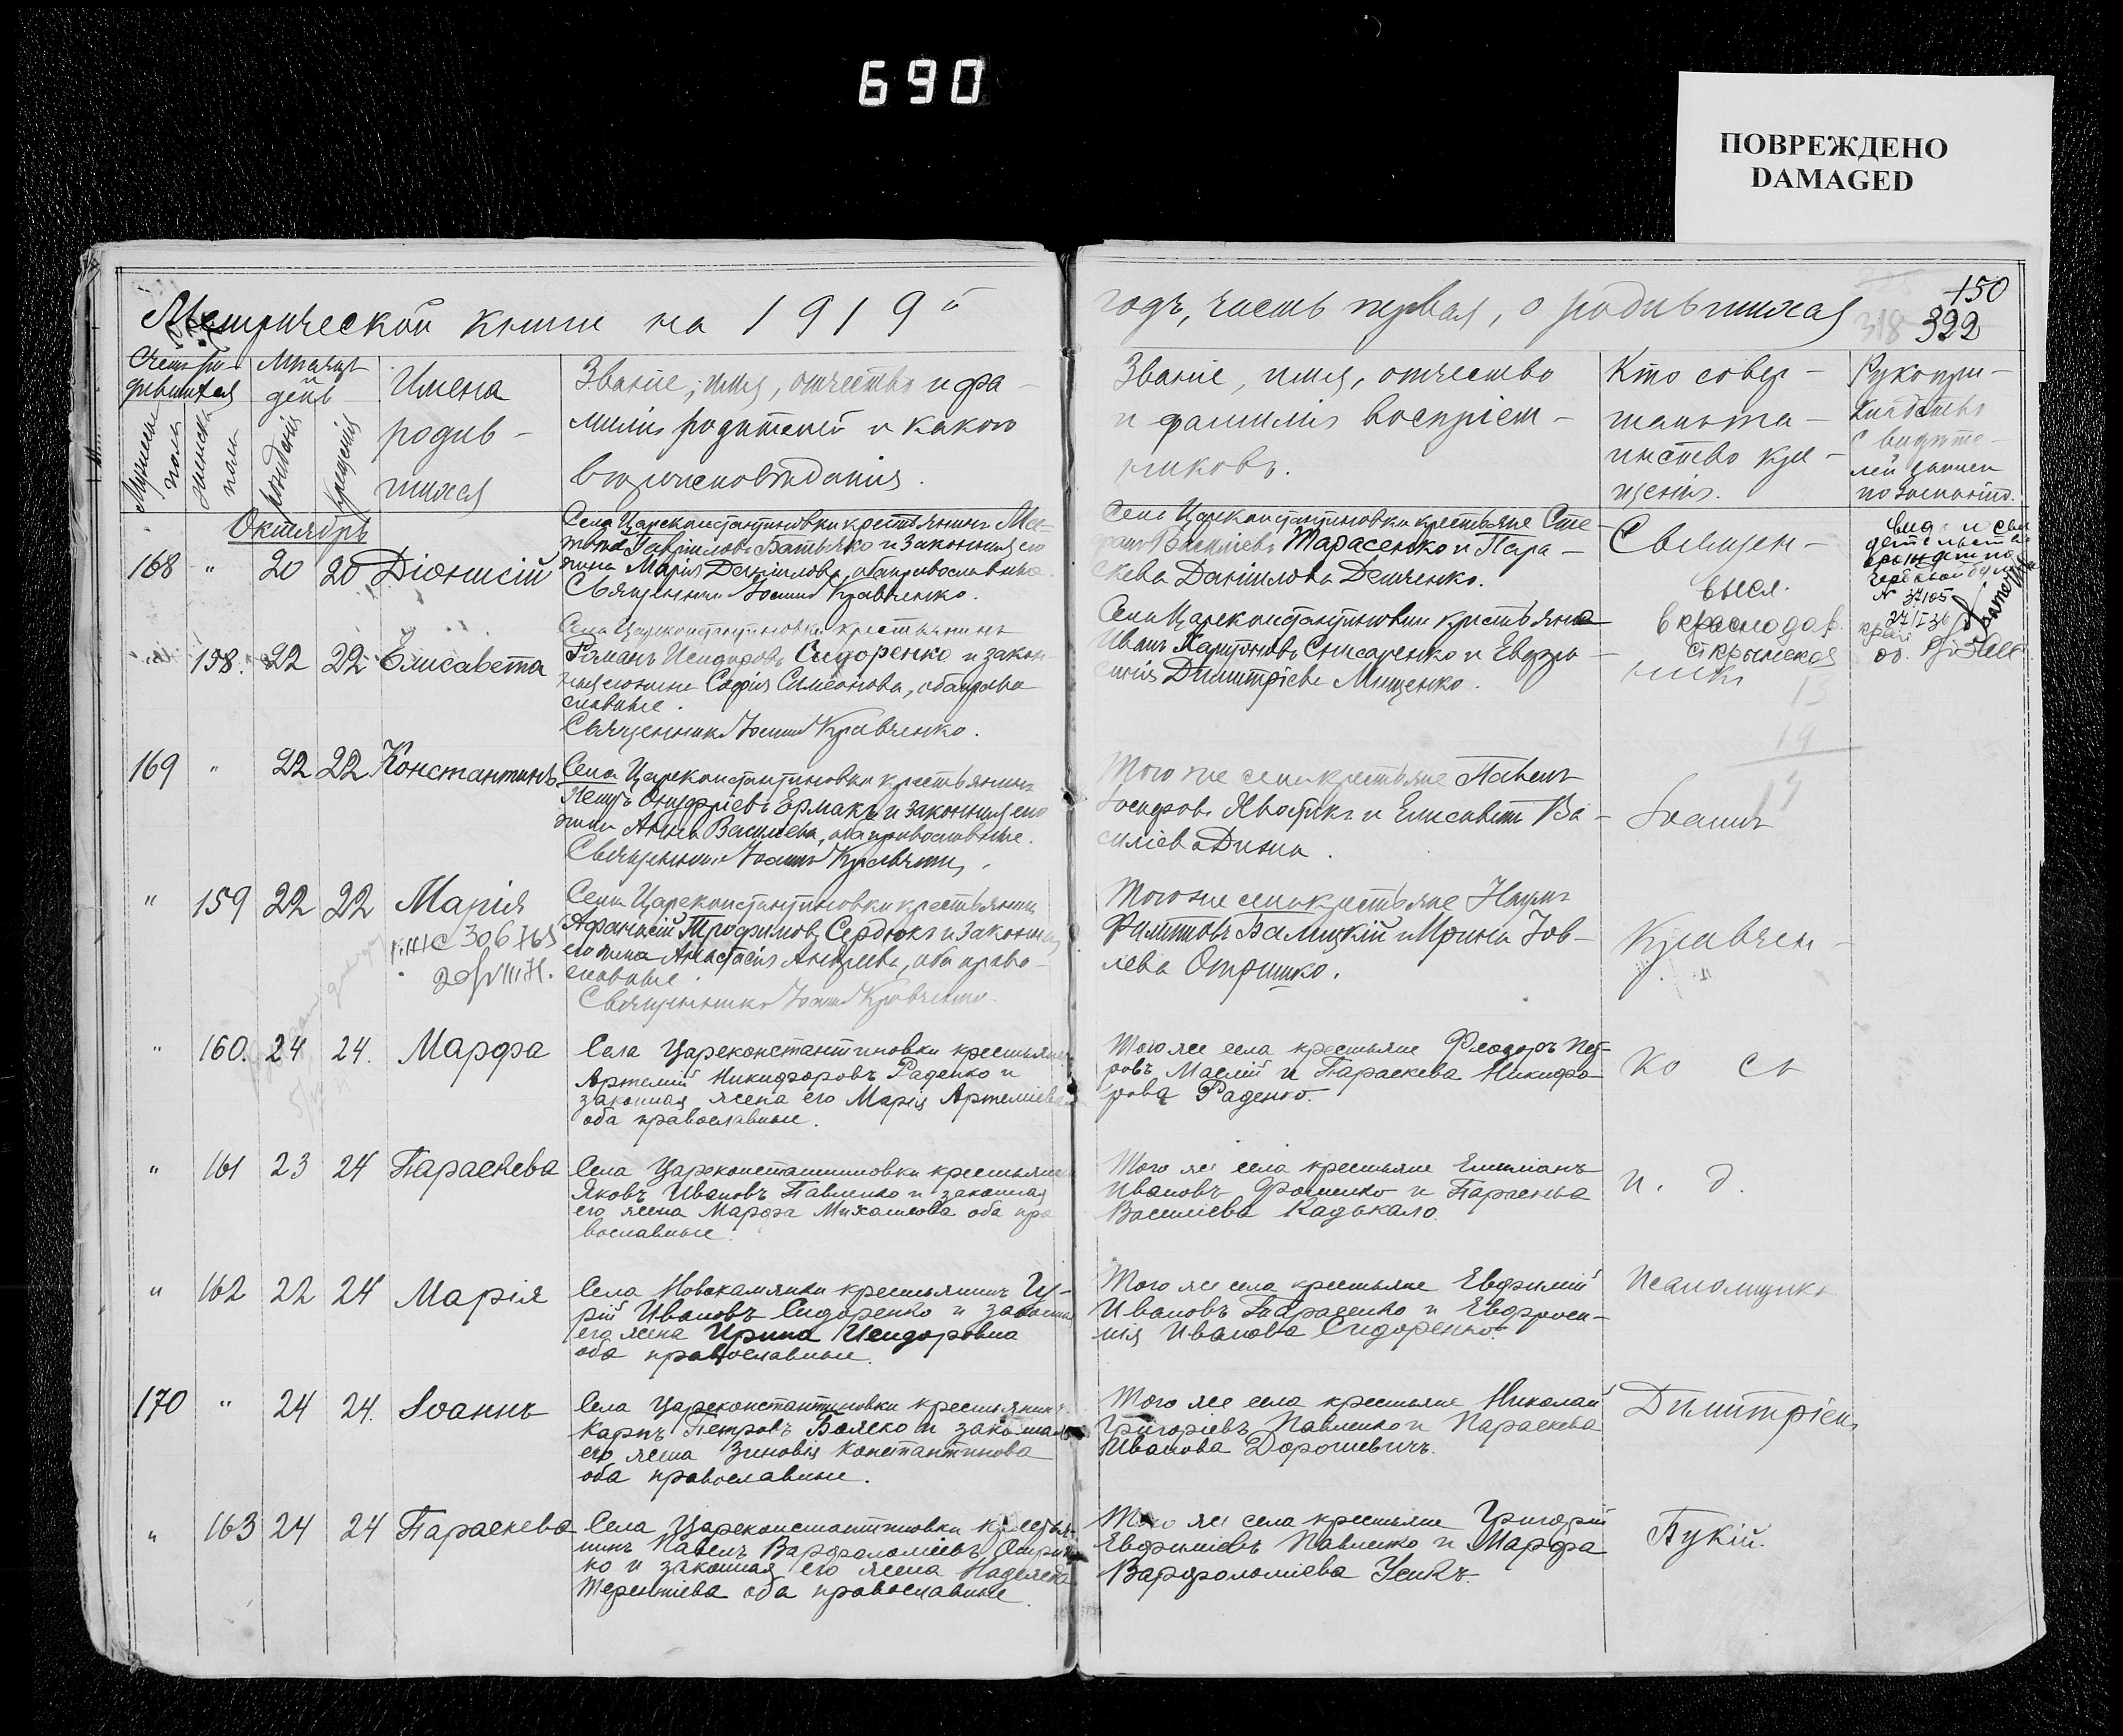 690
ПОВРЕЖДЕНО
DAMAGED
Метрической книги на 1919й
годъ, часть первая, о родившихся
150
318 322
Счетъ ро-
дившихся
Мѣсяцъ
и
день
Мужеска
пола
Женска
пола
рожденія
крещенія
Имена
родив-
шихся
Званіе, имя, отчество и фа-
милія родителей и какого
вѣроисповѣданія.
Званіе, имя, отчество
и фамилія воспріем-
никовъ.
Кто совер-
шалъ та-
инство кре-
щенія.
Рукопри-
кладство
свидѣте-
лей записи
по желанію.
Октябрь
168 " 20 20 Діонисій
Села Цареконстантиновки крестьянинъ
Гавріиловъ Батечко и законная его
жена Марія Даніилова, оба православные.
Священникъ Іоаннъ Кравченко.
Села Цареконстантиновки крестьяне Сте-
фанъ Василіевъ Тарасенко и Пара-
скева Даніилова Демченко.
Священ-
№ 37105
158. 22 22 Елисавета
Села Цареконстантиновки крестьянинъ
Романъ Исидоровъ Сидоренко и закон-
ная его жена Софія Симеонова, оба право-
славные.
Священникъ Іоаннъ Кравченко.
Села Цареконстантиновки крестьяне
Иванъ Харитоновъ Слисаренко и Евфро-
синія Димитріева Мищенко.
высл.
в краснодар.
край
ст крымская
никъ
169 " 22 22 Константинъ
Села Цареконстантиновки крестьянинъ
Петръ Онуфріевъ Ермакъ и законная его
жена Анна Василіева, оба православные.
Священникъ Іоаннъ Кравченко.
Того же села крестьяне Павелъ
Іосифовъ Хвостикъ и Елисавета Ва-
силіева Дика.
Іоаннъ
" 159 22 22 Марія
306765
Села Цареконстантиновки крестьянинъ
Афанасій Трофимовъ Сердюкъ и законная
его жена Анастасія Андреева, оба право-
славные.
Священникъ Іоаннъ Кравченко.
Того же села крестьяне Наумъ
Филипповъ Балицкій и Ирина Іов-
лева Отришко.
Кравчен-
" 160. 24 24. Марфа
Села Цареконстантиновки крестьянинъ
Артемій Никифоровъ Раденко и
законная жена его Марія Артеміева
оба православные.
Того же села крестьяне Феодоръ Пет-
ровъ Маслій и Параскева Никифо-
рова Раденко.
ко съ
" 161 23 24 Параскева
Села Цареконстантиновки крестьянинъ
Яковъ Ивановъ Павленко и законная
его жена Марфа Михаилова оба пра
вославные.
Того же села крестьяне Емиліанъ
Ивановъ Фоменко и Параскева
Василіева Кадькало.
и. д.
" 162 22 24 Марія
Села Новокамянки крестьянинъ Гу-
рій Ивановъ Сидоренко и законная
его жена Ирина Исидоровна
оба православные.
Того же села крестьяне Евфимій
Ивановъ Тарасенко и Евфроси-
нія Иванова Сидоренко.
псаломщика
170 " 24 24. Іоаннъ
Села Цареконстантиновки крестьянинъ
Карпъ Петровъ Божко и законная
его жена Зиновія Константинова
оба православные.
Того же села крестьяне Николай
Григоріевъ Павленко и Параскева
Иванова Дорошевичъ.
Димитріемъ
" 163 24 24 Параскева
Села Цареконстантиновки крестья-
нинъ Павелъ Варфоломіевъ Отриш
ко и законная его жена Надежда
Терентіева оба православные.
Того же села крестьяне Григорій
Евфиміевъ Павленко и Марфа
Варфоломіева Усикъ.
Пукій.